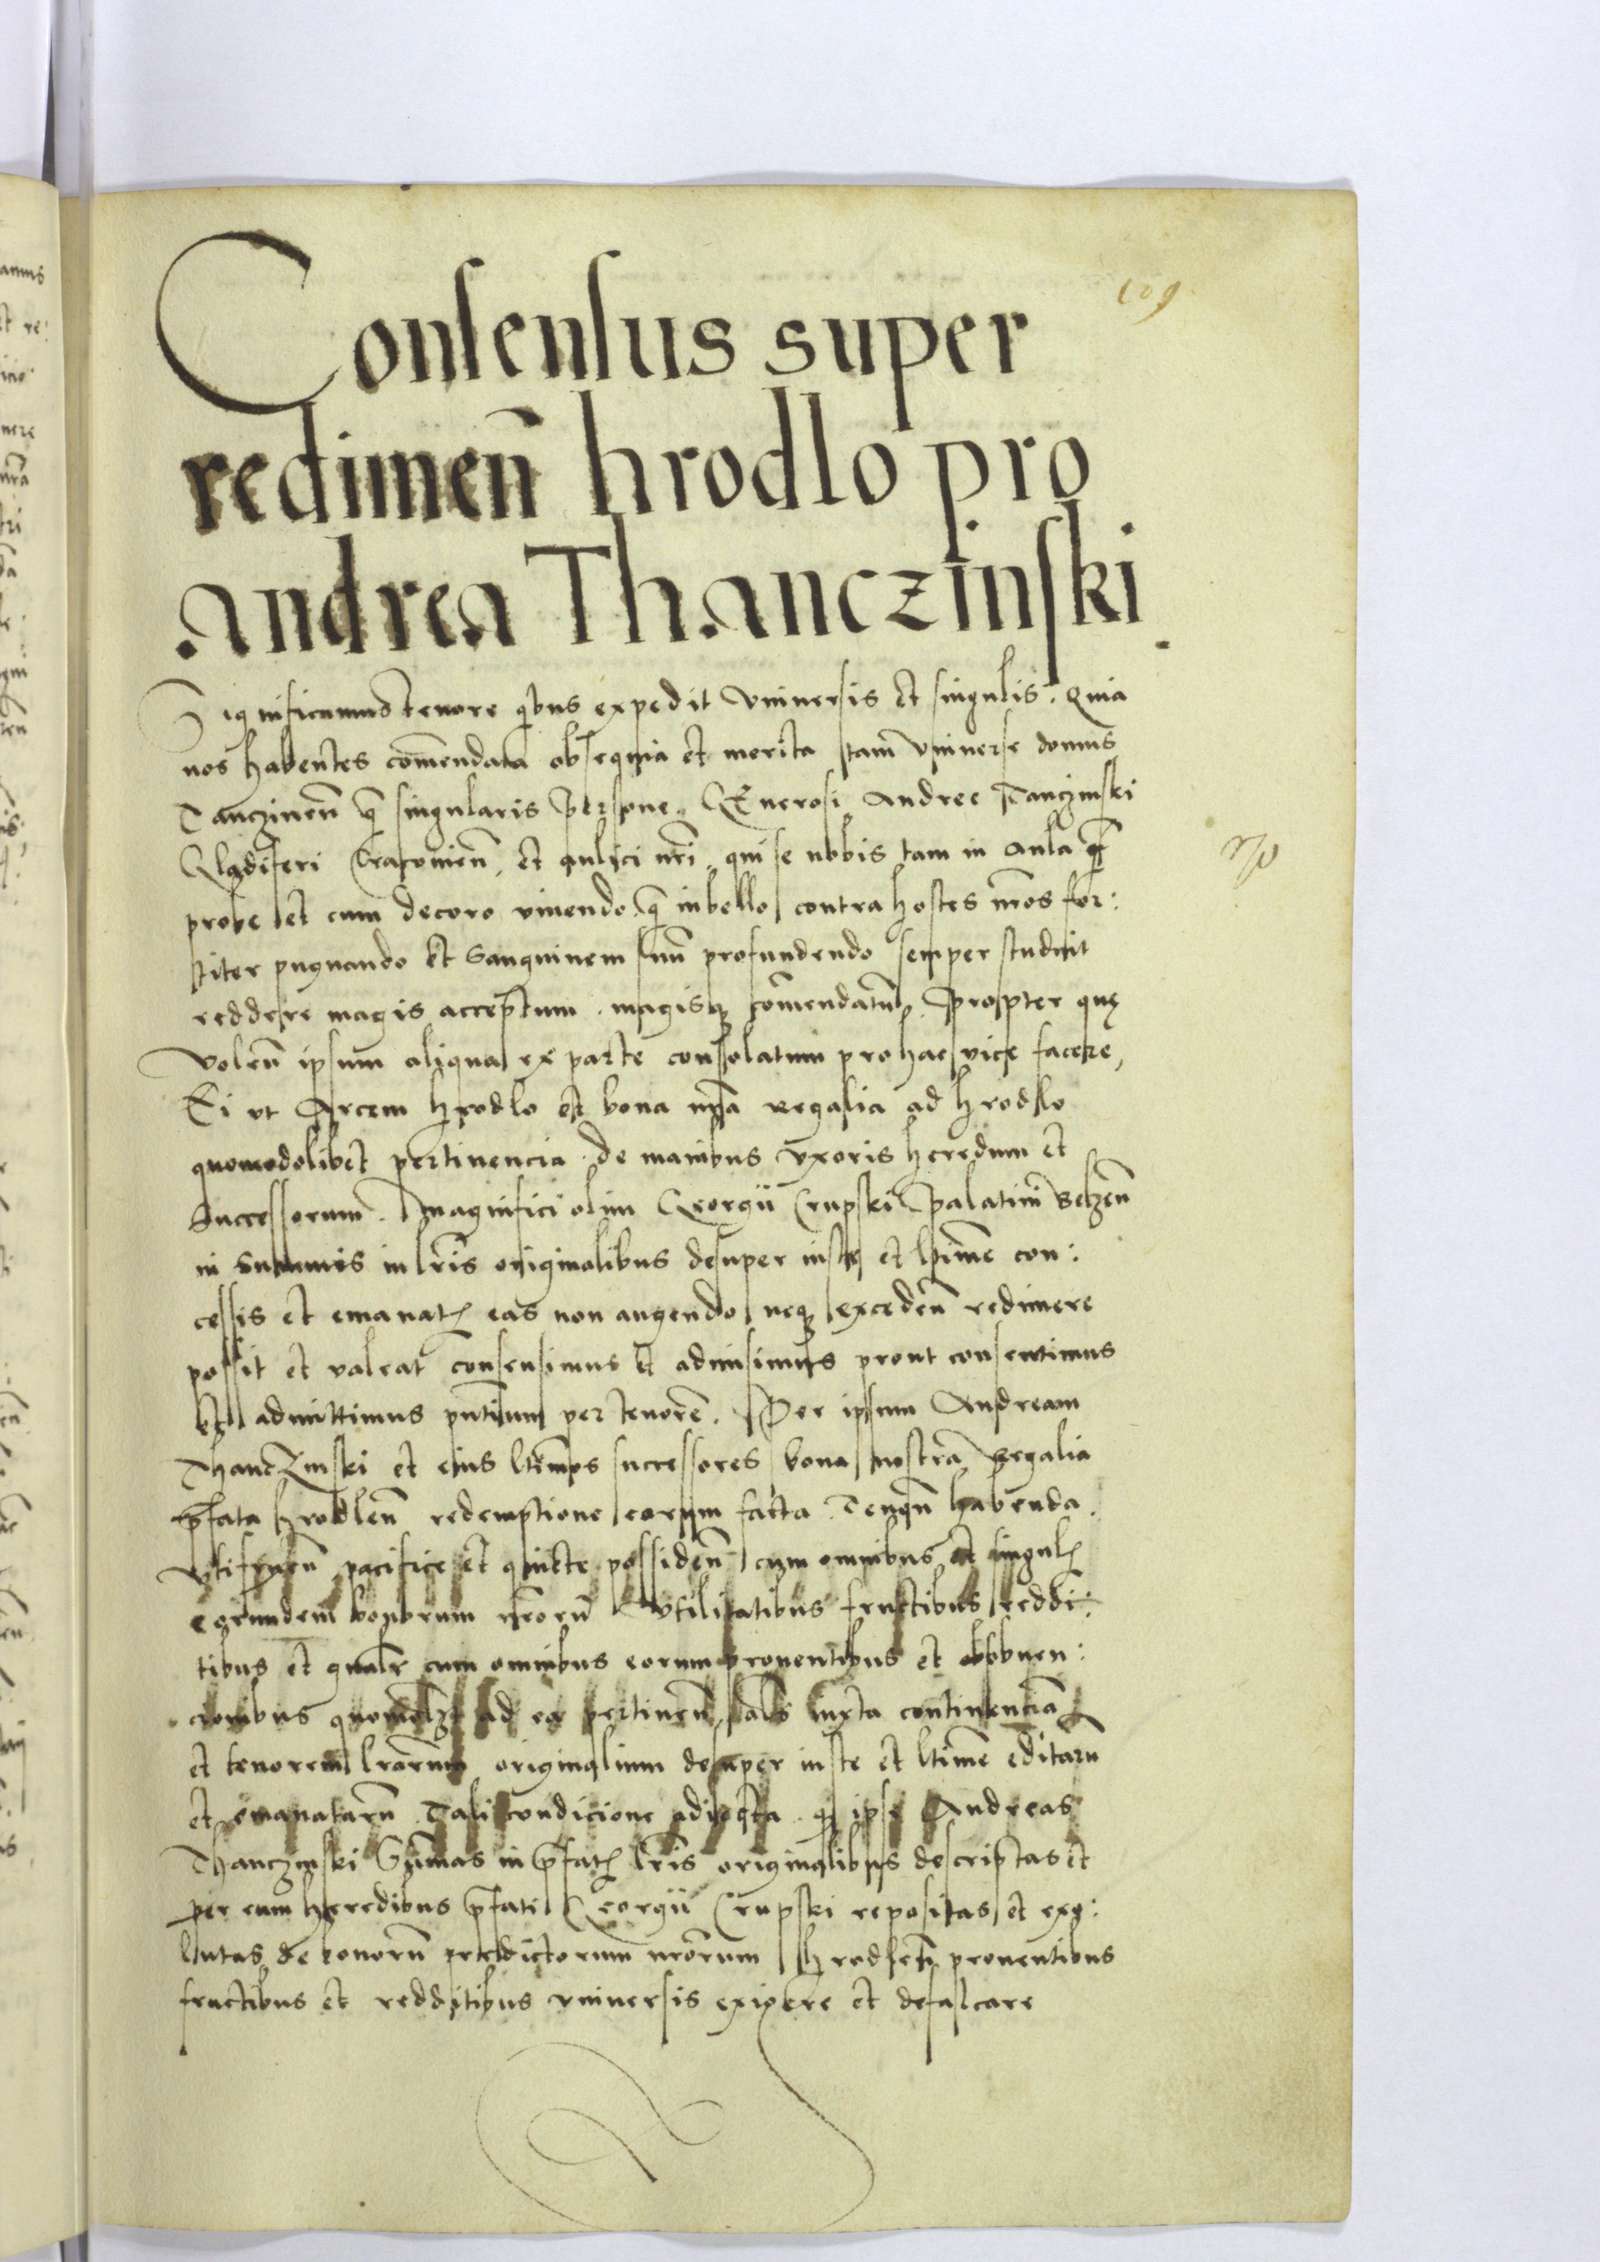 109
Consensus super
redimeñ hrodlo pro
Andrea Thanczinski
Significamus tenore qbus expedit Vniuersis et singulis. Quia
nos habentes com̄endata obsequia et merita tam Vniuerse domus
Tanczineñ q̄ singularis persone Generosi Andree Tanczinski
Gladiferi Cracouieñ. et aulici nr̄i, qui se nobis tam in aula
probe et cum decoro viuendo q̄ in bello contra hostes nr̄os for:
titer pugnando et Sanguinem suū profundendo semper studuit
reddere magis acceptum. magisq; com̄endatū. Propter que
voleñ ipsum aliqua ex parte consolatum pro hac vice facere,
Ei vt Arcem hrodlo et bona nr̄a Regalia ad hrodlo
quomodolibet pertinencia de manibus vxoris heredum et
Successorum. Magnifici olim Georgii Crupski Palatini Belzeñ
in Summis in lr̄is originalibus desuper iuste et ltime con:
cessis et emanat. eas non augendo neq; excedeñ redimere
possit et valeat consensimus et admisimus prout consentimus
et admittimus pn̄tium per tenorē. Per ipsum Andream
Thanczinski et eius ltimos successores bona nostra Regalia
p̄fata hrodleñ redemptione eorum facta. Teneñ habenda.
Vtifrueñ pacifice et quiete possideñ cum omnibus et singul.
eorundem bonorum nr̄orū vtilitatibus fructibus reddi:
tibus et gnalr̄ cum omnibus eorum prouentibus et obuen:
cionibus quomolz ad ea pertineñ, als iuxta continenciā
et tenorem lrārum originalium desuper iuste et ltime editarū
et emanatarū. Tali condicione adiecta. q ipse Andreas
Thanczinski Sum̄as in p̄fat. lr̄is originalibus descriptas et
per eum heredibus p̄fati Georgii Crupski repositas et exo:
lutas de bonorū predictorum nr̄orum hrodleñ prouentibus
fructibus et redditibus vniuersis exigere et defalcare